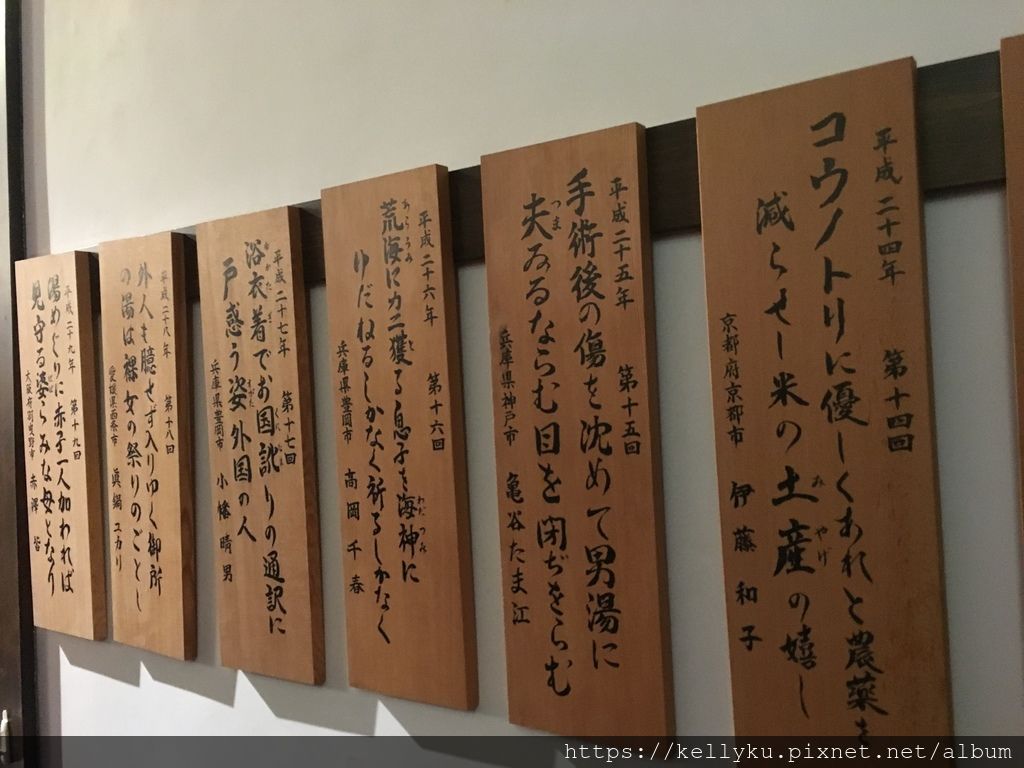 平成二十四年 第十四回
コウノトリに優しくあれと農薬を
減らせし米の土産の嬉し
みやげ
京都府京都市 伊藤和子
平成二十五年 第十五回
手術後の傷を沈めて男湯に
夫ゐるならむ目を閉ぢをらむ
つま
兵庫県神戸市 亀谷たま江
平成二十六年 第十六回
荒海にカニ獲る息子を海神に
あらうみ と わだつみ
ゆだねるしかなく祈るしかなく
兵庫県豊岡市 高岡千春
平成二十七年 第十七回
浴衣着でお国訛りの通訳に
ゆかたぎ くに
戸惑う姿外国の人
兵庫県豊岡市 小幡晴男
平成二十八年 第十八回
外人も臆せず入りゆく御所
の湯は裸女の祭りのごとし
愛媛県西条市 眞鍋ユカリ
平成二十九年 第十九回
湯めぐりに赤子一人加われば
見守る婆らみな母となり
大阪府羽曳野市 赤澤
https://kellyku.pixnet.net/album